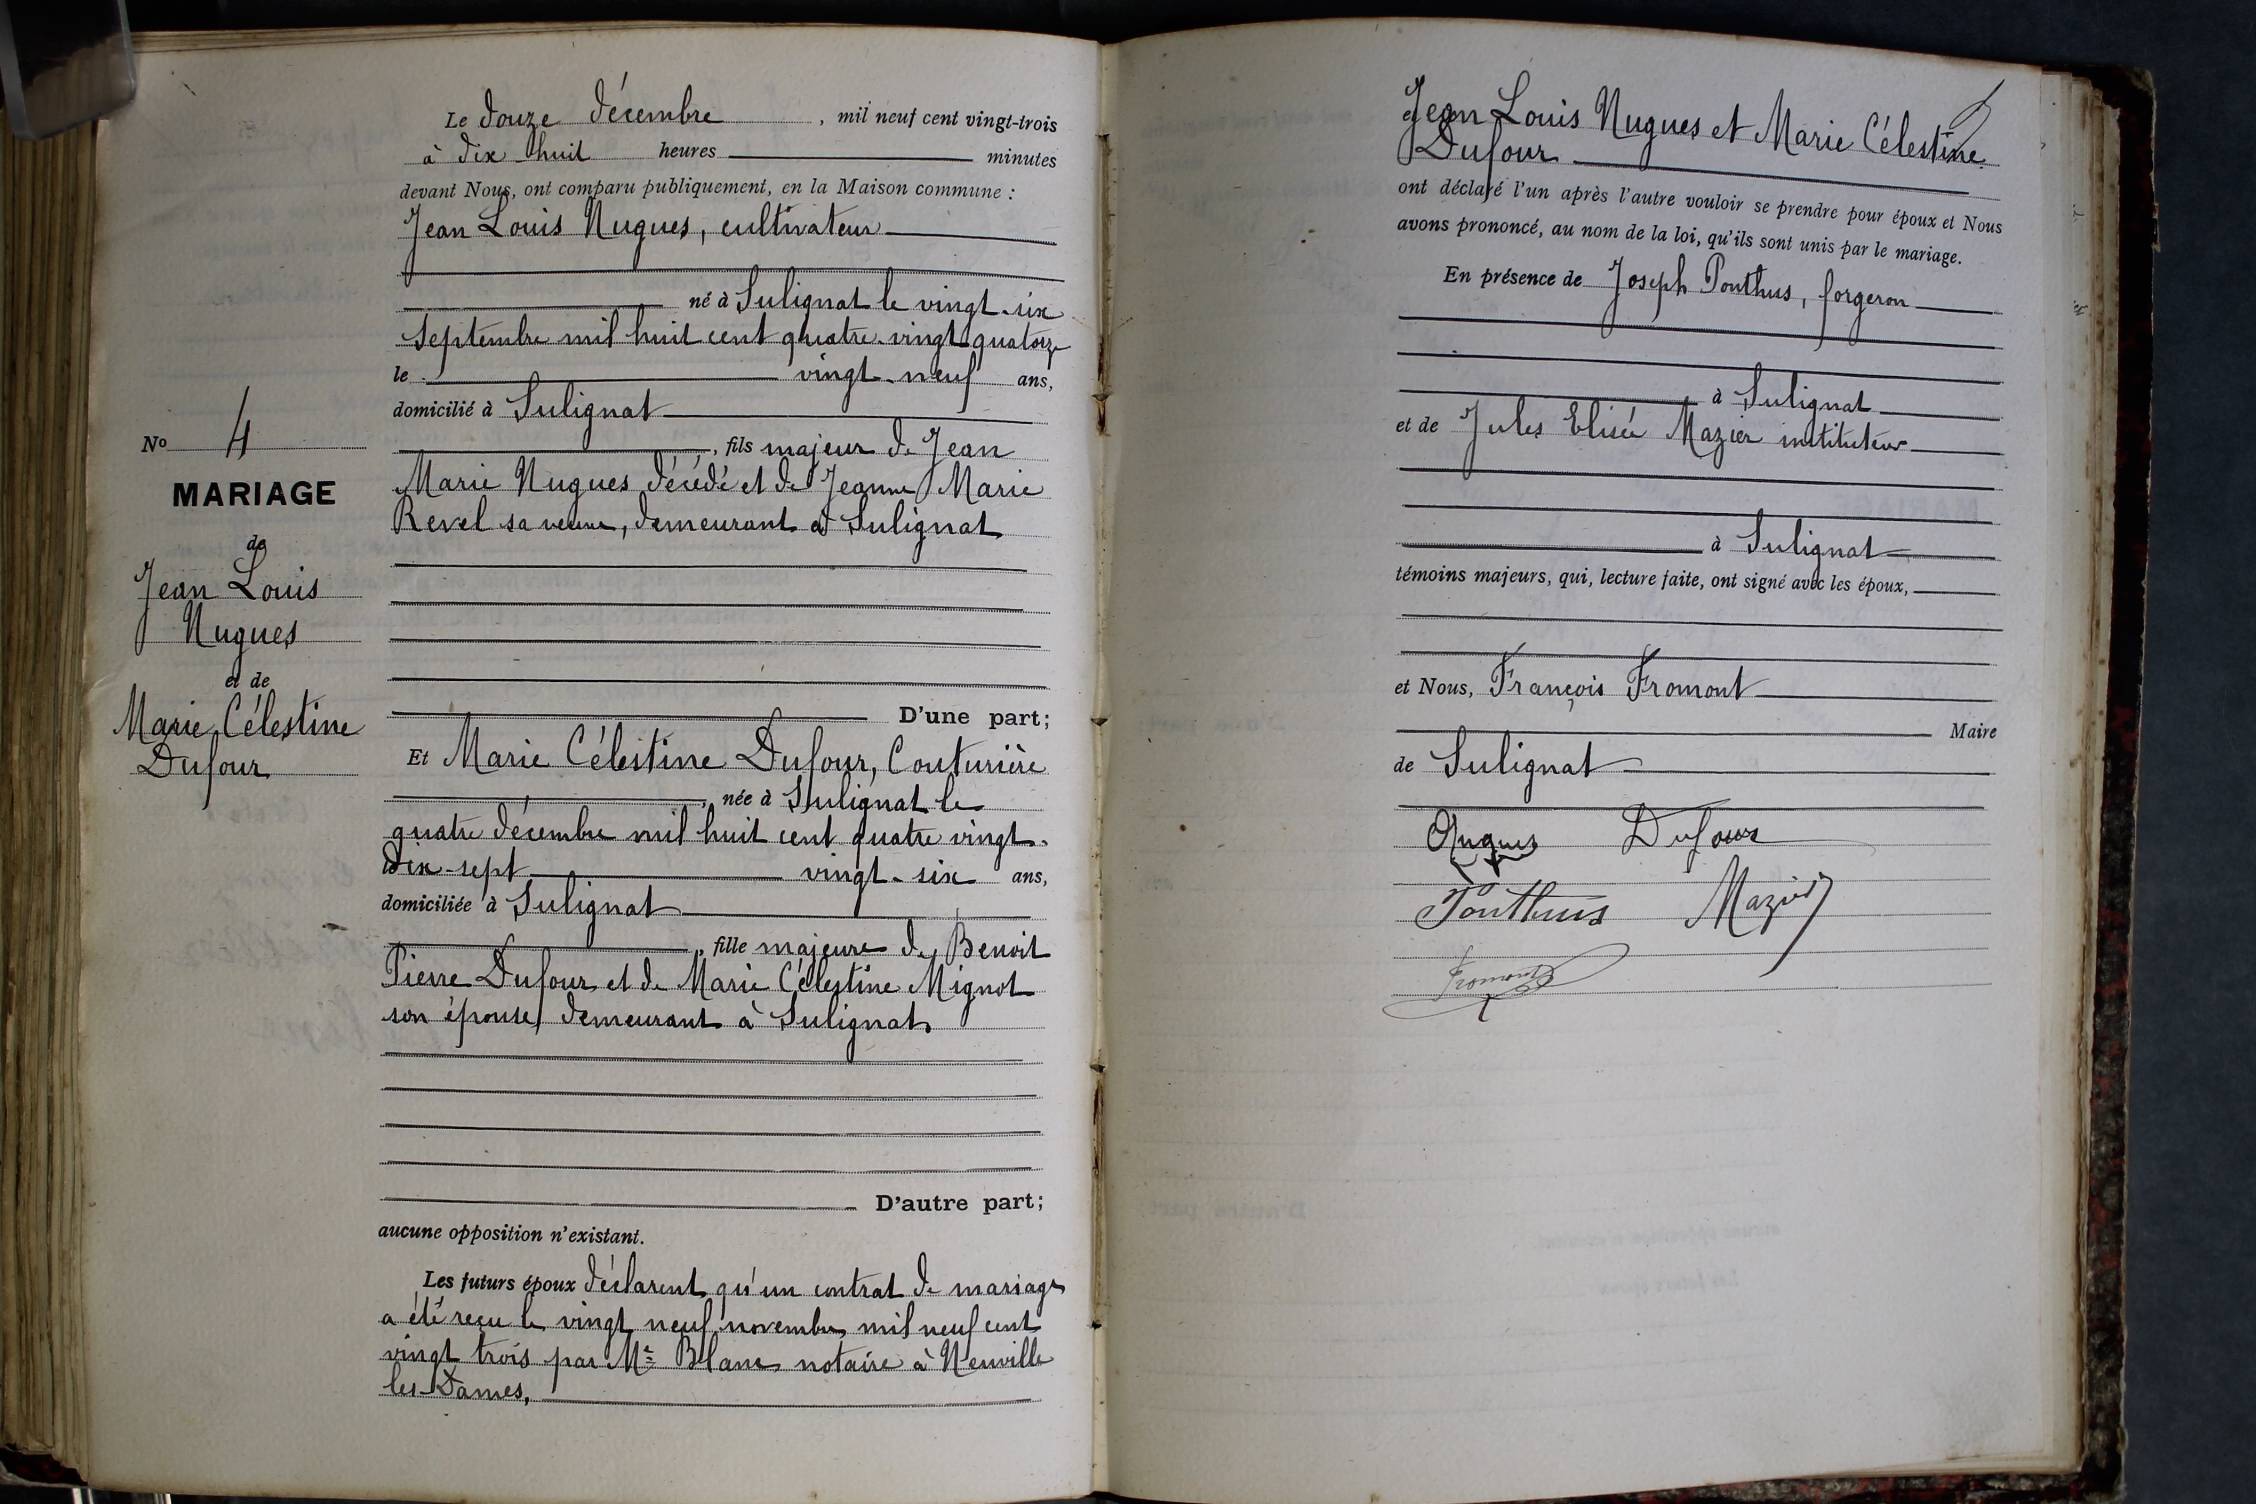 Le douze décembre, mil neuf cent vingt-trois
à dix huit heures minutes
devant Nous, ont comparu publiquement, en la Maison commune :
Jean Louis Nugues, cultivateur
né à Sulignat le vingt-six
septembre mil huit cent quatre-vingt quatorze
le vingt-neuf ans,
domicilié à Sulignat
, fils majeur de Jean
Marie Nugues décédé et de Jeanne Marie
Revel sa veuve, demeurant à Sulignat
No 4
MARIAGE
de
Jean Louis
Nugues
et de
Marie Célestine
Dufour
D'une part;
Et Marie Célestine Dufour, Couturière
, née à Sulignat le
quatre décembre mil huit cent quatre vingt-
dix-sept vingt-six ans,
domiciliée à Sulignat
, fille majeure de Benoit
Pierre Dufour et de Marie Célestine Mignot
son épouse, demeurant à Sulignat
D'autre part;
aucune opposition n'existant.
Les futurs époux déclarent qu'un contrat de mariage
a été reçu le vingt neuf novembre mil neuf cent
vingt trois par Me Blanc notaire à Neuville
les-Dames,
Jean Louis Nugues et Marie Célestine
Dufour
ont déclaré l'un après l'autre vouloir se prendre pour époux et Nous
avons prononcé, au nom de la loi, qu'ils sont unis par le mariage.
En présence de Joseph Ponthus, forgeron
à Sulignat
et de Jules Elisée Mazier instituteur
à Sulignat
témoins majeurs, qui, lecture faite, ont signé avec les époux,
et Nous, François Fromont
Maire
de Sulignat
Nugues Dufour
Ponthus Mazier
Fromont